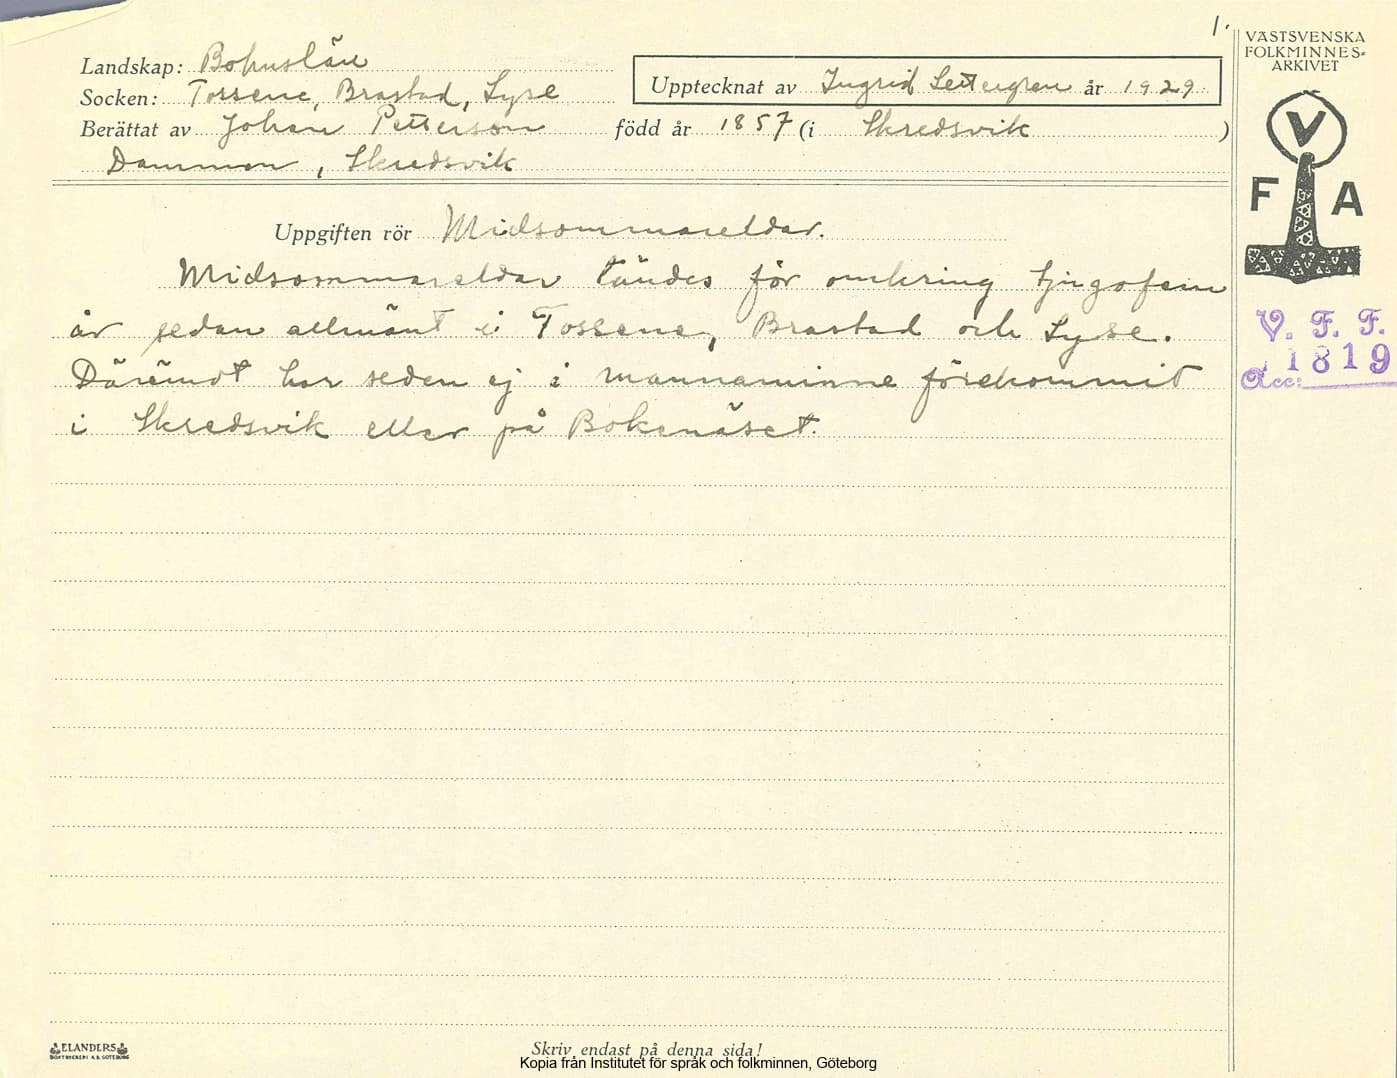 1.
VÄSTSVENSKA
FOLKMINNES-
ARKIVET
Landskap: Bohuslän
Socken: Tossene, Brastad, Lyse
Upptecknat av Ingrid Settergren år 1929
Berättat av Johan Petterson född år 1857 (i Skredsvik)
Dammen, Skredsvik
V
F A
Uppgiften rör Midsommareldar.
Midsommareldar tändes för omkring tjugofem
år sedan allmänt i Tossene, Brastad och Lyse.
Däremot har seden ej i mannaminne förekommit
i Skredsvik eller på Bokenäset.
V. F. F.
1819
Acc:
ELANDERS
BOKTRYCKERI A.B. GÖTEBORG
Skriv endast på denna sida!
Kopia från Institutet för språk och folkminnen, Göteborg